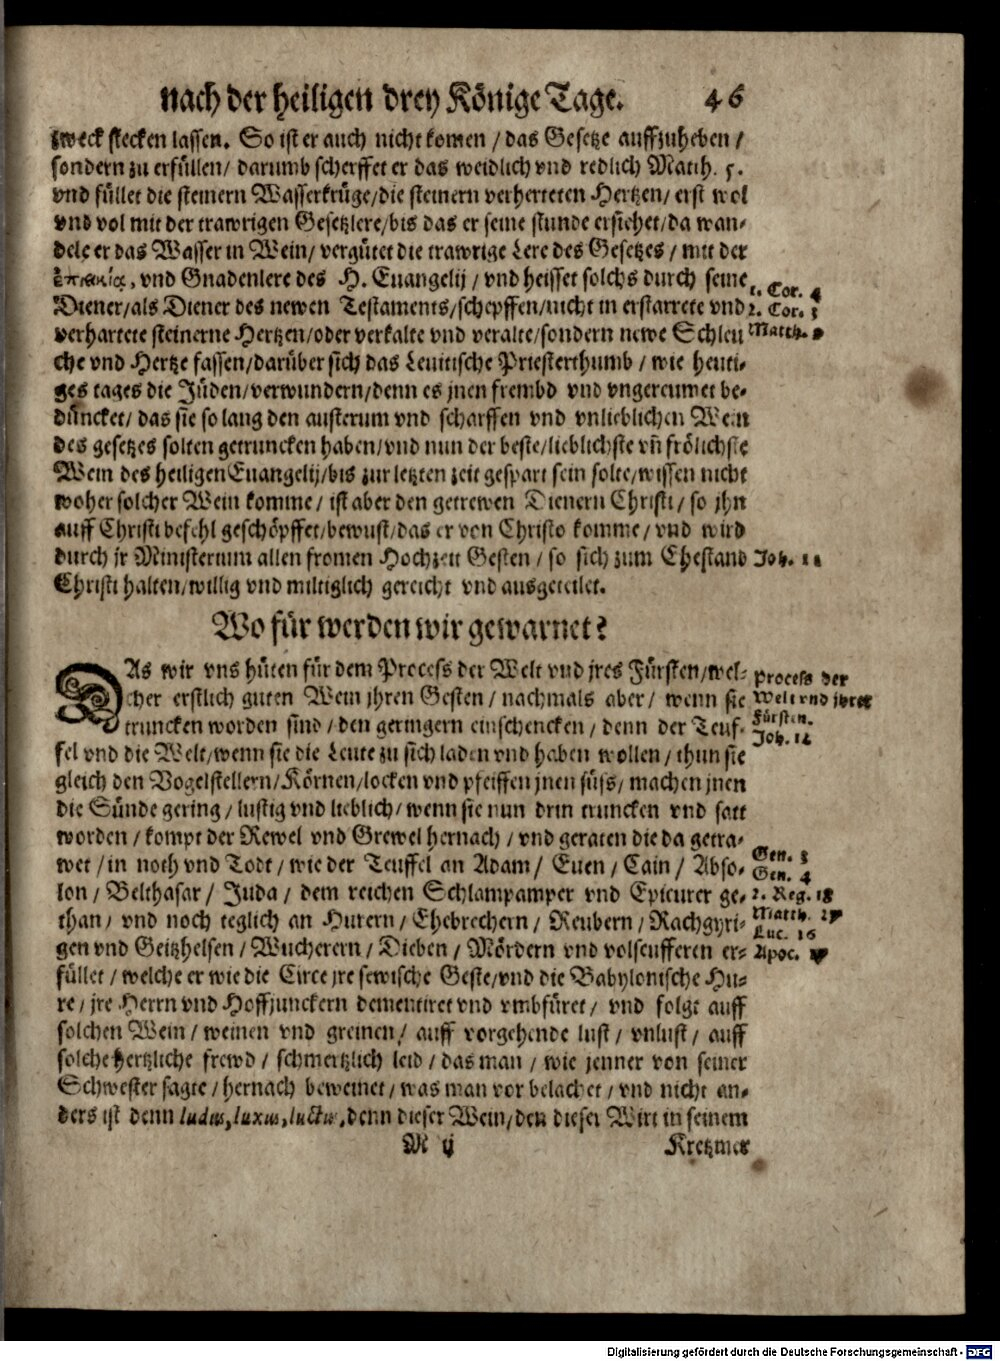 nach der heiligen drey Könige Tage. 46
zweck stecken lassen. So ist er auch nicht komen / das Gesetze auffzuheben /
sondern zu erfüllen / darumb scherffet er das weidlich vnd redlich Matth. 5.
vnd füllet die steinern Wasserkrüge/die steinern verherteten Hertzen/ erst wol
vnd vol mit der trawrigen Gesetzlere/bis das er seine stunde ersiehet/da wan-
dele er das Wasser in Wein/ vergütet die trawrige Lere des Gesetzes / mit der
ἐπιεικίᾳ, vnd Gnadenlere des H. Euangelij / vnd heisset solchs durch seine
1. Cor. 4
Diener/als Diener des newen Testaments/schepffen/nicht in erstarrete vnd
2. Cor. 3
verhartete steinerne Hertzen/oder verkalte vnd veralte/sondern newe Schleu
Matth. 9
che vnd Hertze fassen/darüber sich das Leuitische Priesterthumb / wie heuti-
ges tages die Jüden/verwundern/denn es jnen frembd vnd vngereumet be-
düncket/ das sie so lang den austerum vnd scharffen vnd vnlieblichen Wein
des gesetzes solten getruncken haben/vnd nun der beste/lieblichste vñ frölichste
Wein des heiligen Euangelij/bis zur letzten zeit gespart sein solte/wissen nicht
woher solcher Wein komme / ist aber den getrewen Dienern Christi / so jhn
auff Christi befehl geschöpffet/bewust/das er von Christo komme / vnd wird
durch jr Ministerium allen fromen Hochzeit Gesten / so sich zum Ehestand
Joh. 11
Christi halten/willig vnd miltiglich gereicht vnd ausgeteilet.
Wo für werden wir gewarnet?
DAs wir vns hüten für dem Process der Welt vnd jres Fürsten/wel-
Process der
cher erstlich guten Wein jhren Gesten / nachmals aber / wenn sie
Welt vnd jhres
truncken worden sind / den geringern einschencken / denn der Teuf-
Fürsten.
Joh. 14
fel vnd die Welt/wenn sie die Leute zu sich laden vnd haben wollen / thun sie
gleich den Vogelstellern/Körnen/locken vnd pfeiffen jnen süss/ machen jnen
die Sünde gering / lustig vnd lieblich/ wenn sie nun drin truncken vnd satt
worden / kompt der Rewel vnd Grewel hernach / vnd geraten die da getra-
wet / in noth vnd Todt / wie der Teuffel an Adam / Euen / Cain / Abso-
Gen. 3
Gen. 4
lon / Belthasar / Juda / dem reichen Schlampamper vnd Epicurer ge-
2. Reg. 18
than / vnd noch teglich an Hurern / Ehebrechern / Reubern / Rachgyri-
Matth. 27
Luc. 16
gen vnd Geitzhelsen / Wucherern / Dieben / Mördern vnd volseufferen er-
Apoc. 17
füllet / welche er wie die Circe jre sewische Geste/vnd die Babylonische Hu-
re / jre Herrn vnd Hoffjunckern dementiret vnd vmbfüret / vnd folgt auff
solchen Wein / weinen vnd greinen / auff vorgehende lust / vnlust / auff
solche hertzliche frewd / schmertzlich leid / das man / wie jenner von seiner
Schwester sagte / hernach beweinet / was man vor belachet / vnd nicht an-
ders ist denn ludus, luxus, luctus, denn dieser Wein/den dieser Wirt in seinem
M ij Kretzmer
Digitalisierung gefördert durch die Deutsche Forschungsgemeinschaft - DFG